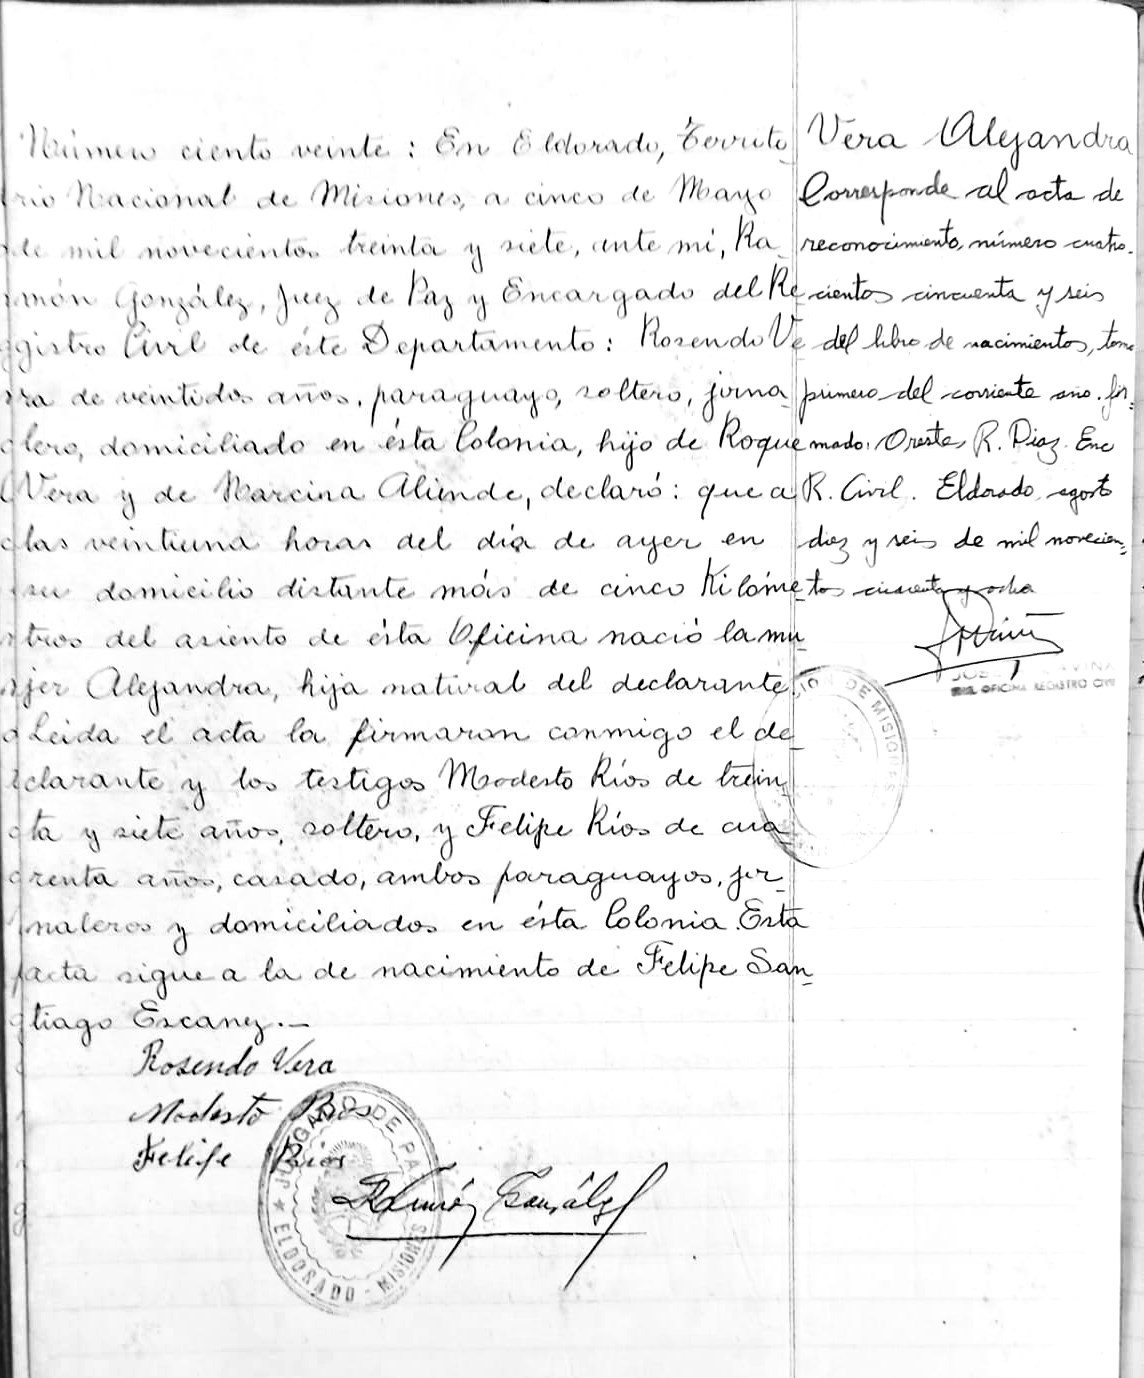 Número ciento veinte: En Eldorado, Territo-
rio Nacional de Misiones, a cinco de Mayo
de mil novecientos treinta y siete, ante mí, Ra-
món González, Juez de Paz y Encargado del Re
gistro Civil de éste Departamento: Rosendo Ve
ra de veintidos años, paraguayo, soltero, jorna-
lero, domiciliado en ésta Colonia, hijo de Roque
Vera y de Marcina Aliende, declaró: que a
las veintiuna horas del día de ayer en
su domicilio distante más de cinco Kilóme-
tros del asiento de ésta Oficina nació la mu-
jer Alejandra, hija natural del declarante.
Leida el acta la firmaron conmigo el de-
clarante y los testigos Modesto Ríos de trein-
ta y siete años, soltero, y Felipe Ríos de cua-
renta años, casado, ambos paraguayos, jor-
naleros y domiciliados en ésta Colonia. Esta
acta sigue a la de nacimiento de Felipe San-
tiago Escanez.—
Rosendo Vera
Modesto Rios
Felipe Rios
Ramón González
JUZGADO DE PAZ
★ ELDORADO - MISIONES
Vera Alejandra
Corresponde al acta de
reconocimiento, número cuatro-
cientos cincuenta y seis
del libro de nacimientos, tomo
primero del corriente año. fir-
mado: Orestes R. Diaz. Enc
R. Civil. Eldorado, agosto
diez y seis de mil novecien-
tos cincuenta y ocho
OFICINA REGISTRO CIVIL
DE MISIONES